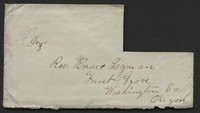 Rev. Horace Lyman
Forest Grove
Washington Co.
Oregon